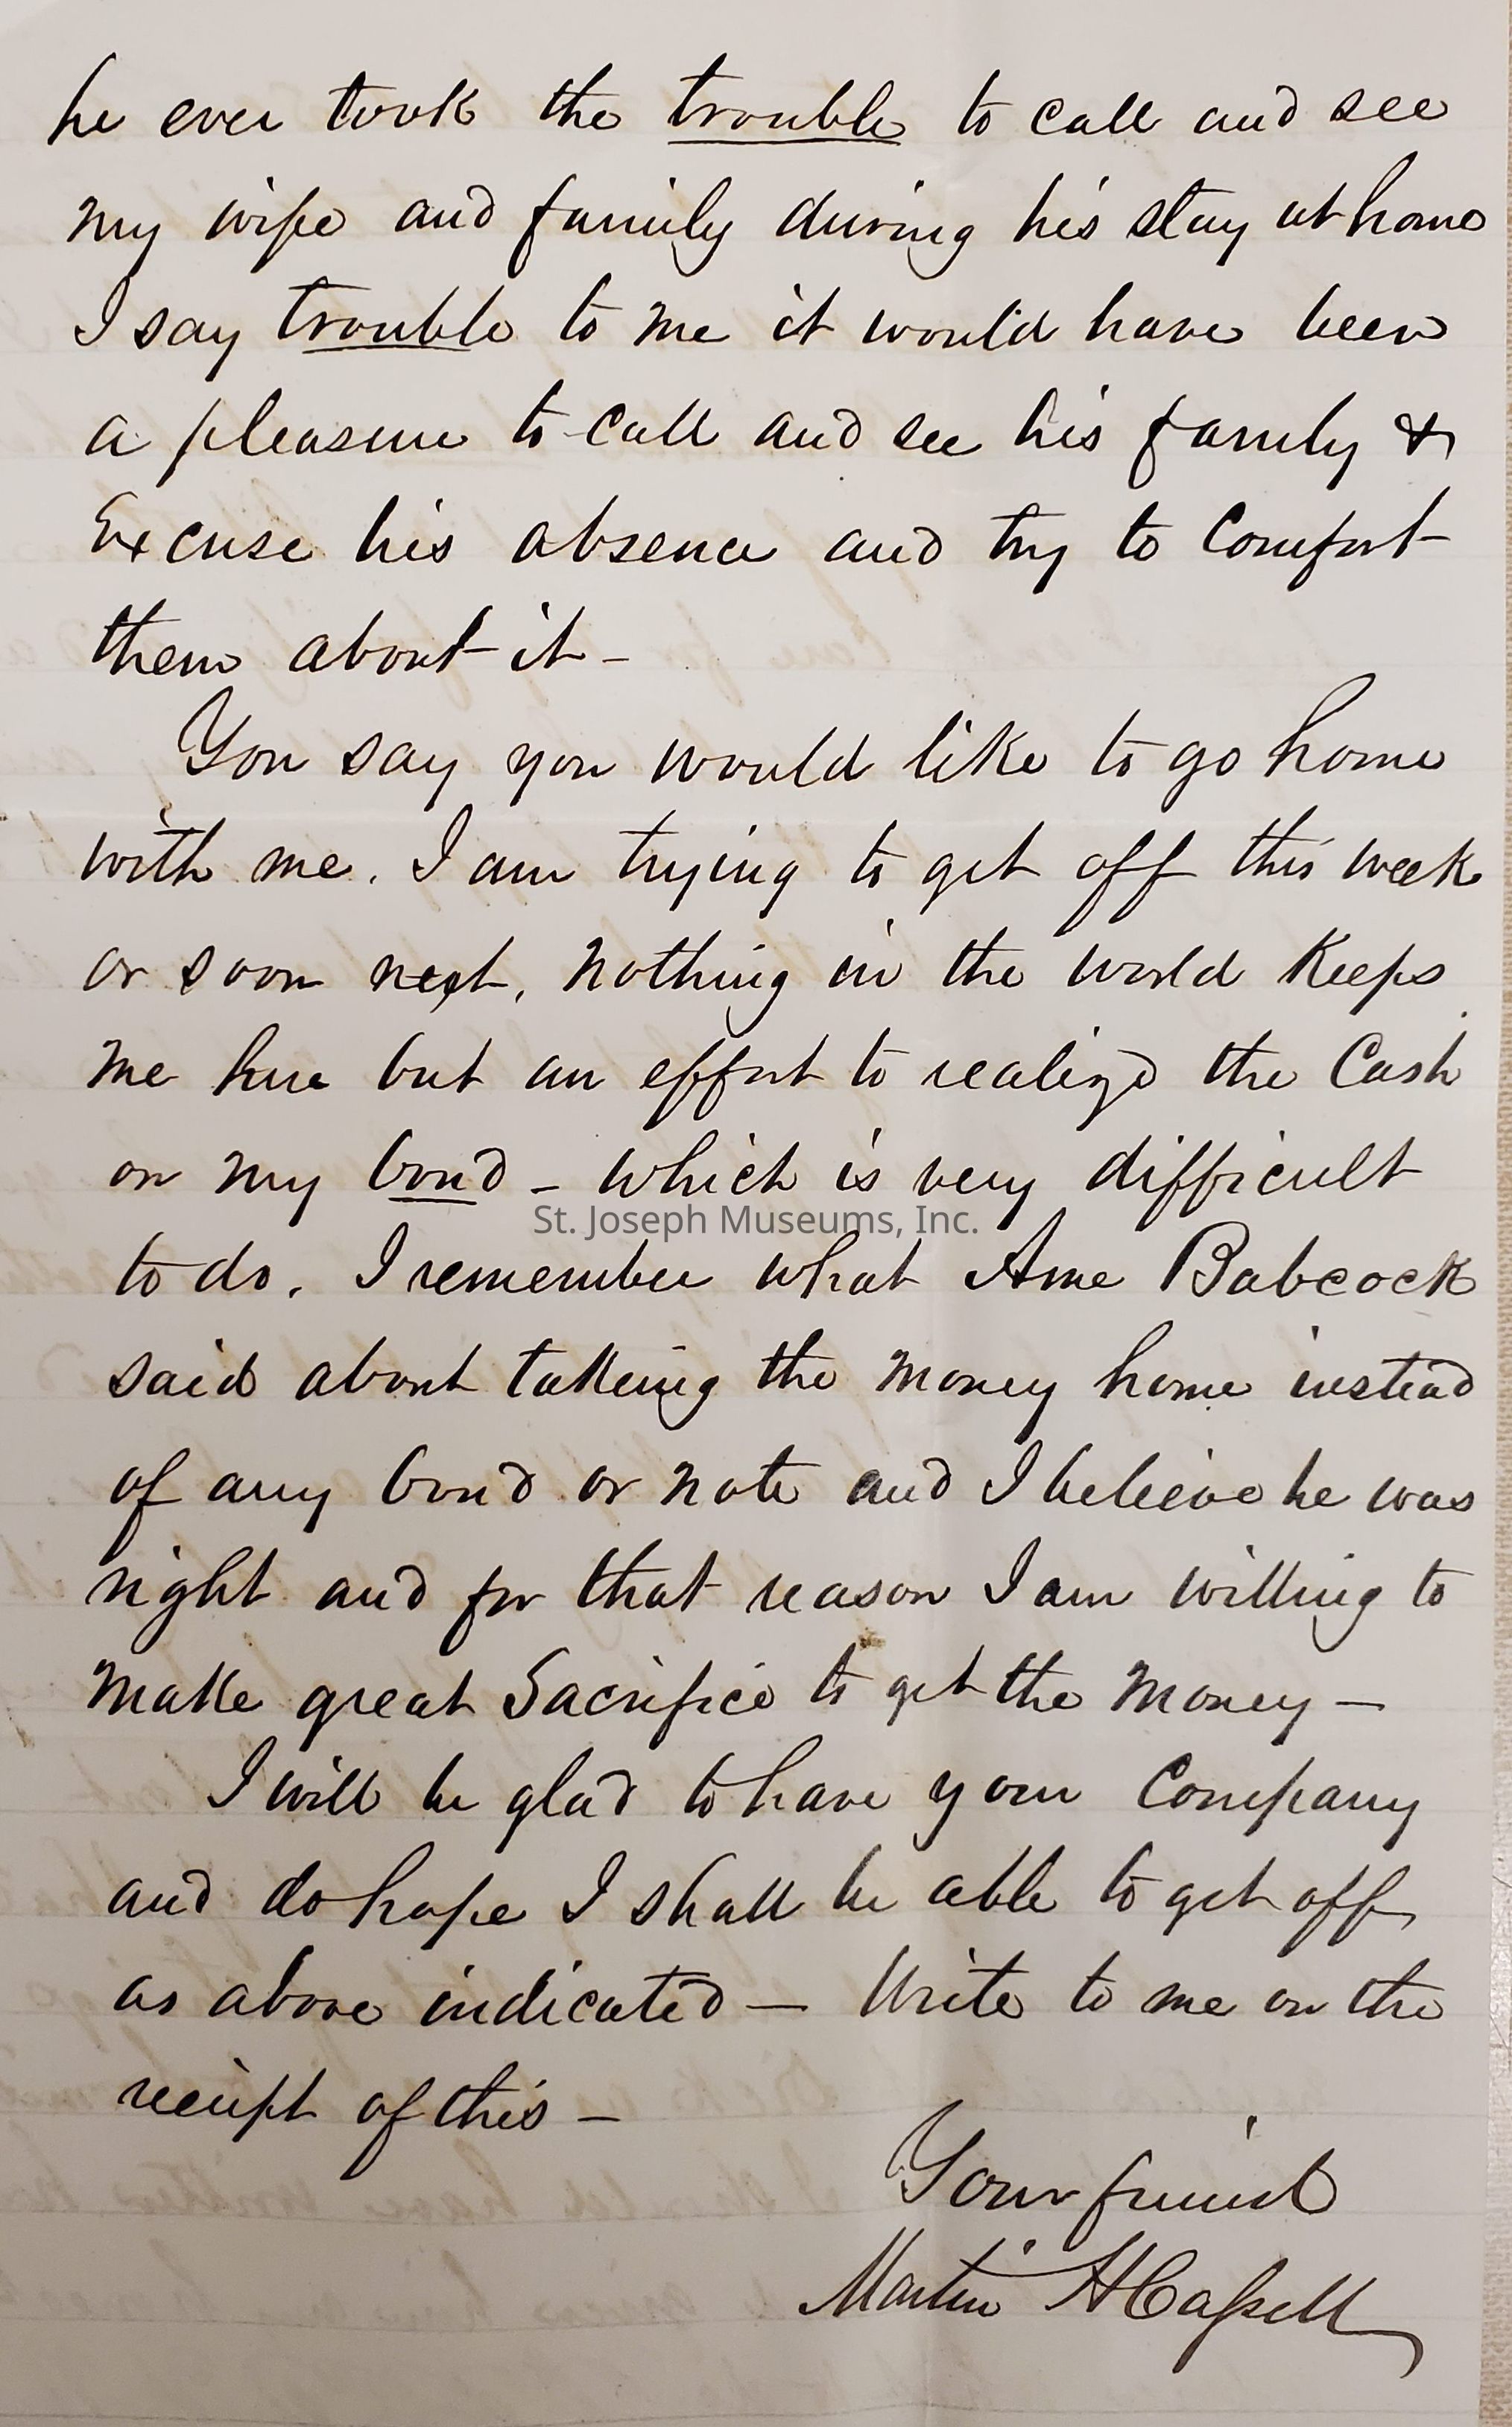 he ever took the trouble to call and see
my wife and family during his stay at home
I say trouble to me it would have been
a pleasure to call and see his family &
Excuse his absence and try to Comfort
them about it -
You say you would like to go home
with me. I am trying to get off this week
or soon next, nothing in the world Keeps
me here but an effort to realize the Cash
on my bond - which is very difficult
St. Joseph Museums, Inc.
to do. I remember what Ame Babcock
said about taking the money home instead
of any bond or note and I believe he was
right and for that reason I am willing to
make great Sacrifice to get the money —
I will be glad to have your Company
and do hope I shall be able to get off
as above indicated — Write to me on the
receipt of this —
Your friend
Martin H Cassell